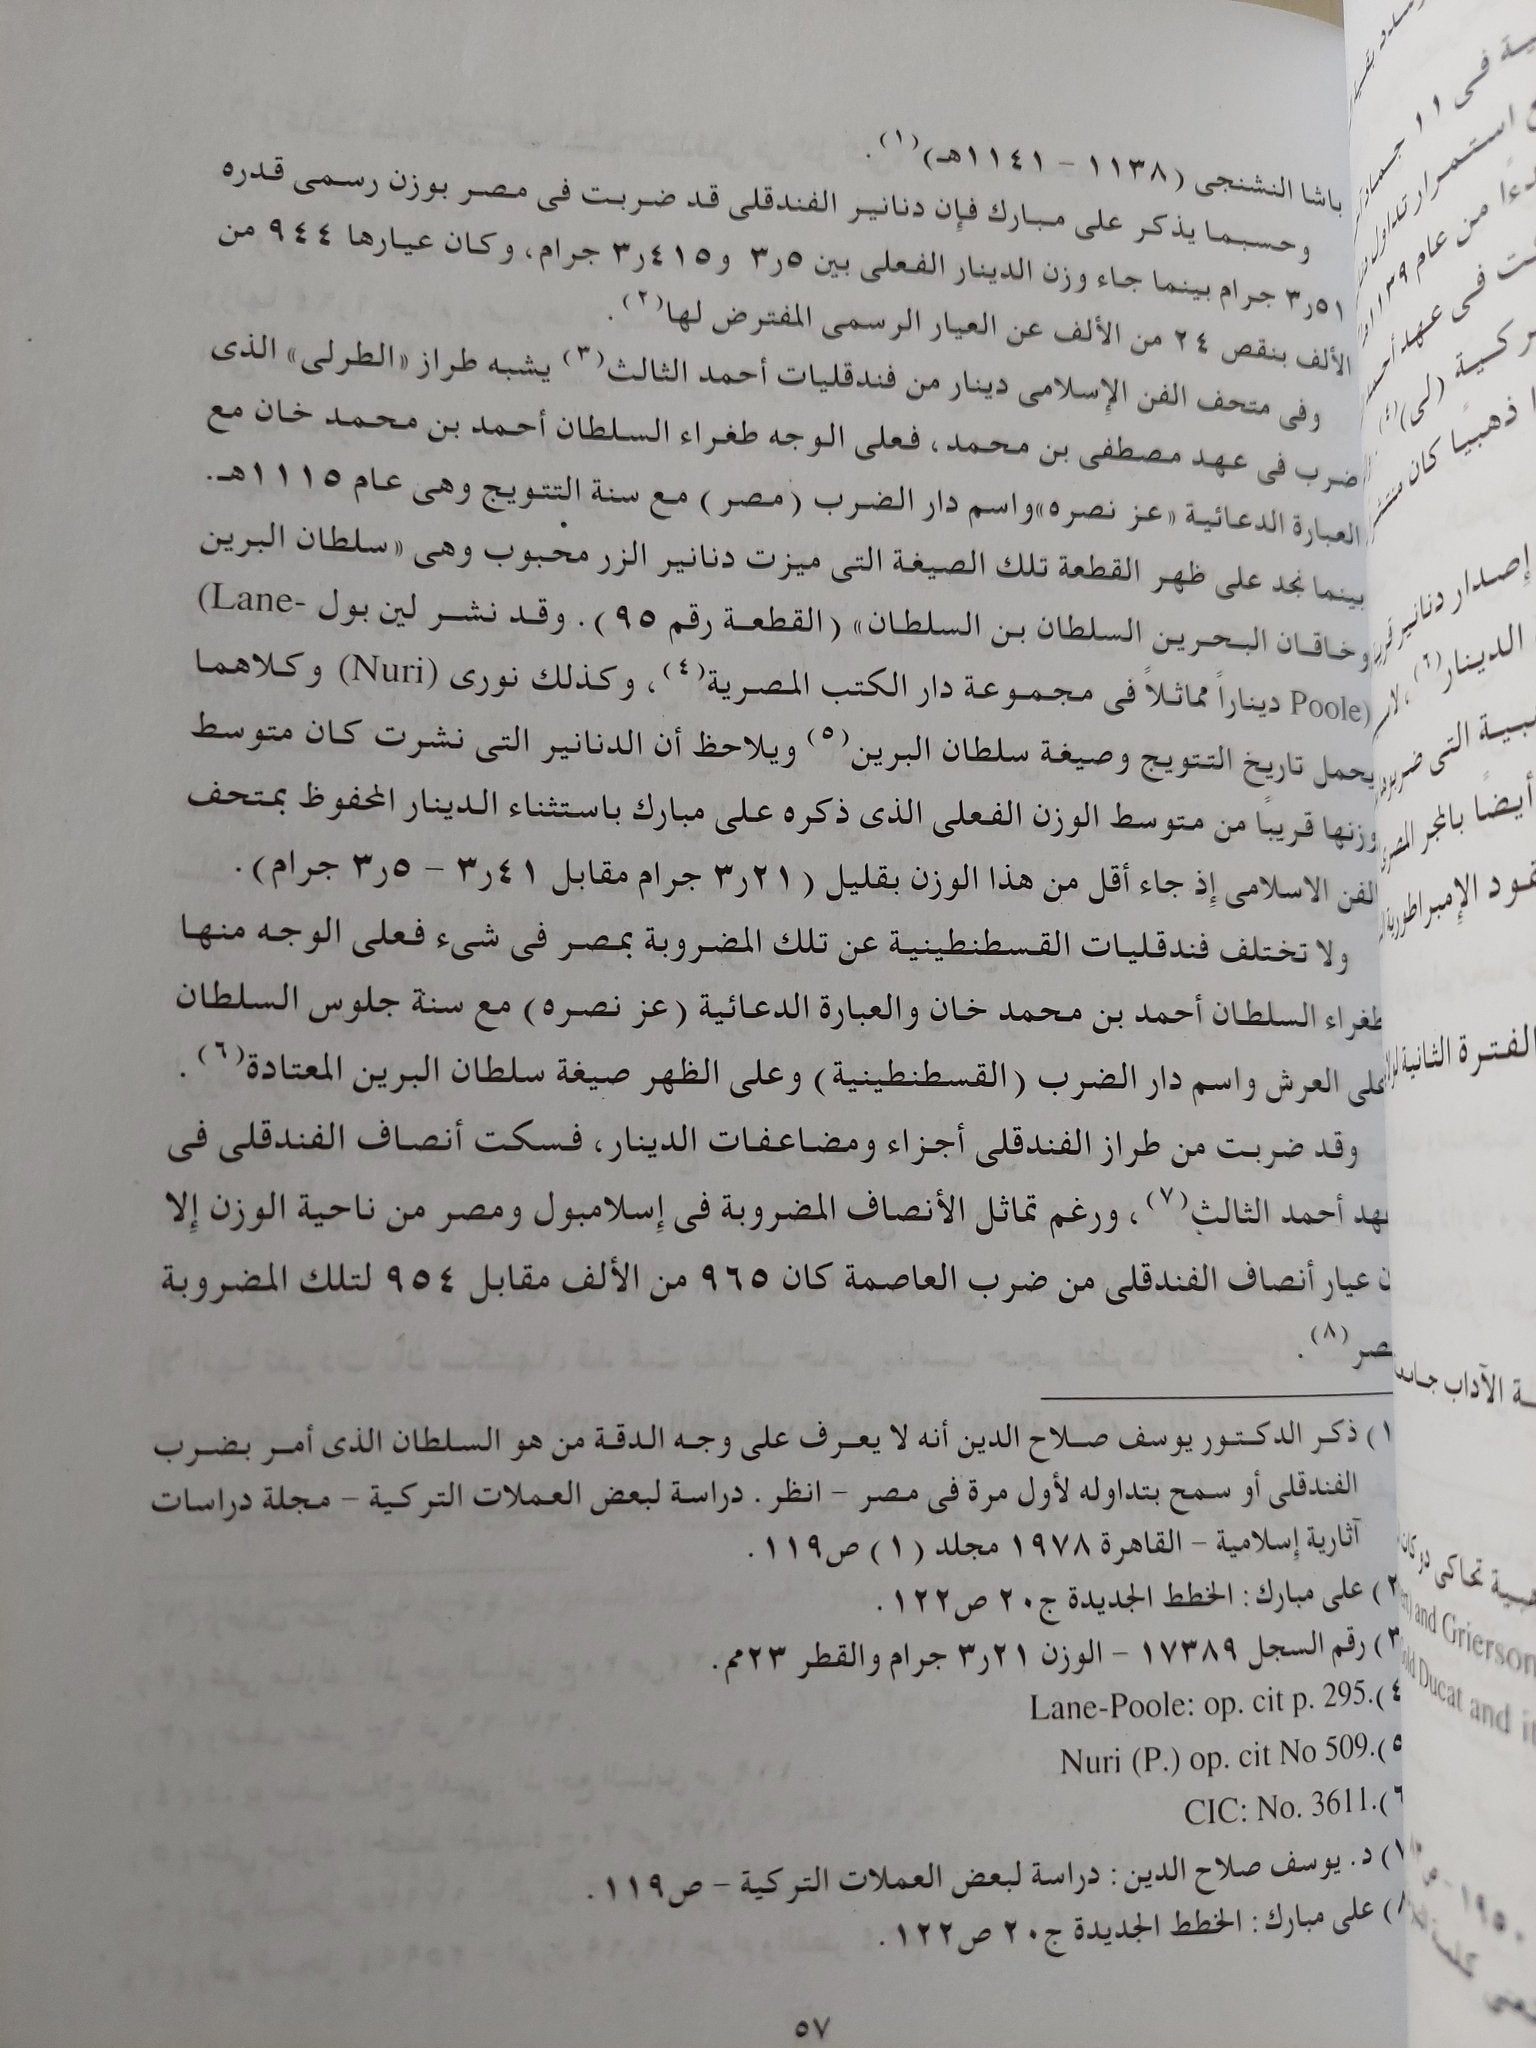 باشا النشنجى (١١٣٨ – ١١٤١هـ)(١).
وحسبما يذكر على مبارك فإن دنانير الفندقلى قد ضربت فى مصر بوزن رسمى قدره
٣ر٥١ جرام بينما جاء وزن الدينار الفعلى بين ٣ر٥ و٣ر٤١٥ جرام، وكان عيارها ٩٤٤ من
الألف بنقص ٢٤ من الألف عن العيار الرسمى المفترض لها(٢).
وفى متحف الفن الإسلامى دينار من فندقليات أحمد الثالث(٣) يشبه طراز «الطرلى» الذى
ضرب فى عهد مصطفى بن محمد، فعلى الوجه طغراء السلطان أحمد بن محمد خان مع
العبارة الدعائية «عز نصره»واسم دار الضرب (مصر) مع سنة التتويج وهى عام ١١١٥هـ.
بينما نجد على ظهر القطعة تلك الصيغة التى ميزت دنانير الزر محبوب وهى «سلطان البرين
وخاقان البحرين السلطان بن السلطان» (القطعة رقم ٩٥). وقد نشر لين بول (Lane-
Poole) ديناراً مماثلاً فى مجموعة دار الكتب المصرية(٤)، وكذلك نورى (Nuri) وكلاهما
يحمل تاريخ التتويج وصيغة سلطان البرين(٥) ويلاحظ أن الدنانير التى نشرت كان متوسط
وزنها قريباً من متوسط الوزن الفعلى الذى ذكره على مبارك باستثناء الدينار المحفوظ بمتحف
الفن الاسلامى إذ جاء أقل من هذا الوزن بقليل (٣ر٢١ جرام مقابل ٣ر٤١ – ٣ر٥ جرام).
ولا تختلف فندقليات القسطنطينية عن تلك المضروبة بمصر فى شىء فعلى الوجه منها
طغراء السلطان أحمد بن محمد خان والعبارة الدعائية (عز نصره) مع سنة جلوس السلطان
على العرش واسم دار الضرب (القسطنطينية) وعلى الظهر صيغة سلطان البرين المعتادة(٦).
وقد ضربت من طراز الفندقلى أجزاء ومضاعفات الدينار، فسكت أنصاف الفندقلى فى
عهد أحمد الثالث(٧)، ورغم تماثل الأنصاف المضروبة فى إسلامبول ومصر من ناحية الوزن إلا
ن عيار أنصاف الفندقلى من ضرب العاصمة كان ٩٦٥ من الألف مقابل ٩٥٤ لتلك المضروبة
صر(٨).
١) ذكر الدكتور يوسف صلاح الدين أنه لا يعرف على وجه الدقة من هو السلطان الذى أمر بضرب
الفندقلى أو سمح بتداوله لأول مرة فى مصر – انظر. دراسة لبعض العملات التركية – مجلة دراسات
آثارية إسلامية – القاهرة ١٩٧٨ مجلد (١) ص١١٩.
٢) على مبارك: الخطط الجديدة ج٢٠ ص١٢٢.
٣) رقم السجل ١٧٣٨٩ – الوزن ٣ر٢١ جرام والقطر ٢٣مم.
٤) Lane-Poole: op. cit p. 295.
٥) Nuri (P.) op. cit No 509.
٦) CIC: No. 3611.
٧) د. يوسف صلاح الدين: دراسة لبعض العملات التركية – ص١١٩.
٨) على مبارك: الخطط الجديدة ج٢٠ ص١٢٢.
٥٧
فى ١١
استمرار تداول
من عام ١١٣٩
فى عهد أحمد
(لى)(٤)
ذهبياً كان
إصدار دنانير
الدينار(٦)
التى
أيضاً بالمجر
الإمبراطورية
الفترة الثانية
الآداب
تحاكى
and Grierson
Ducat and it
١٩٥٠